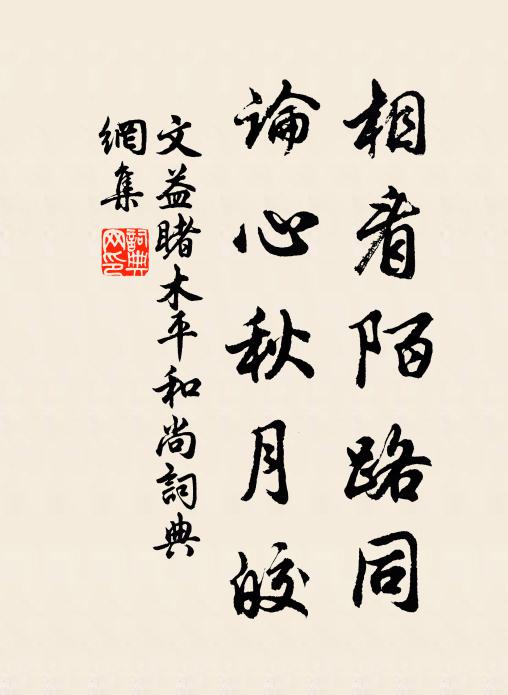 相看陌路同
論心秋月皎
文益睹木平和尚詞典
網集
詞典
网印